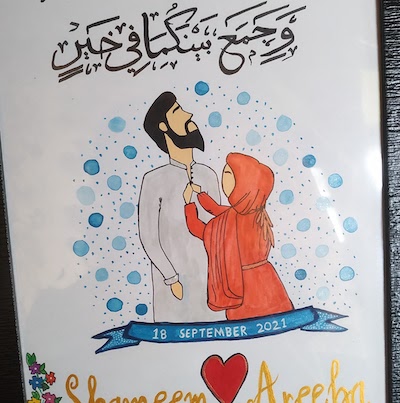 وَجَمَعَ بَيْنَكُمَا فِي خَيْرٍ
18 SEPTEMBER 2021
Shameem Areeba